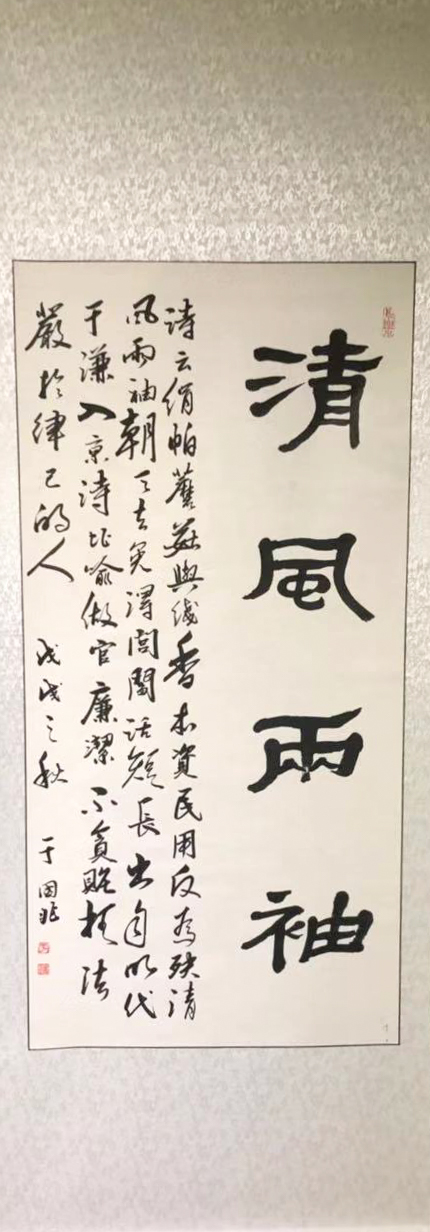 清風兩袖
詩云絹帕蘑菇與綫香本資民用反為殃清
風兩袖朝天去免得閭閻話短長出自明代
于謙入京詩比喻做官廉潔不貪賍枉法
嚴於律己的人 戊戌之秋 于国